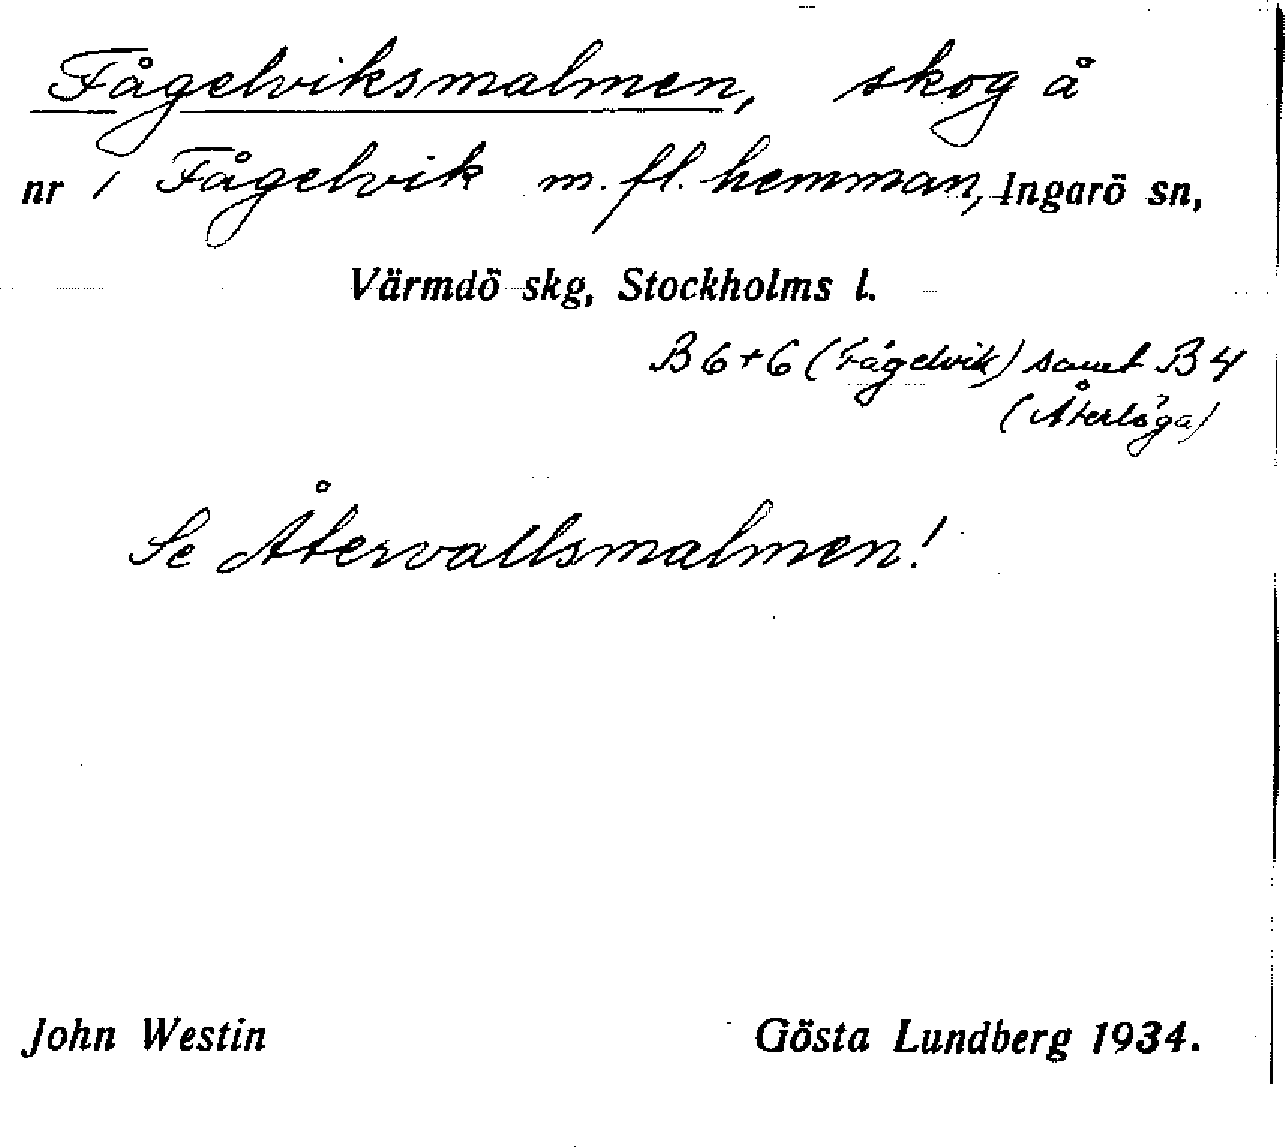 Fågelviksmalmen, skog å
nr 1 Fågelvik m. fl. hemman, Ingarö sn,
Värmdö skg, Stockholms l.
B6+6 (Fågelvik) samt B4
(Återlöga)
Se Återvallsmalmen!
John Westin Gösta Lundberg 1934.